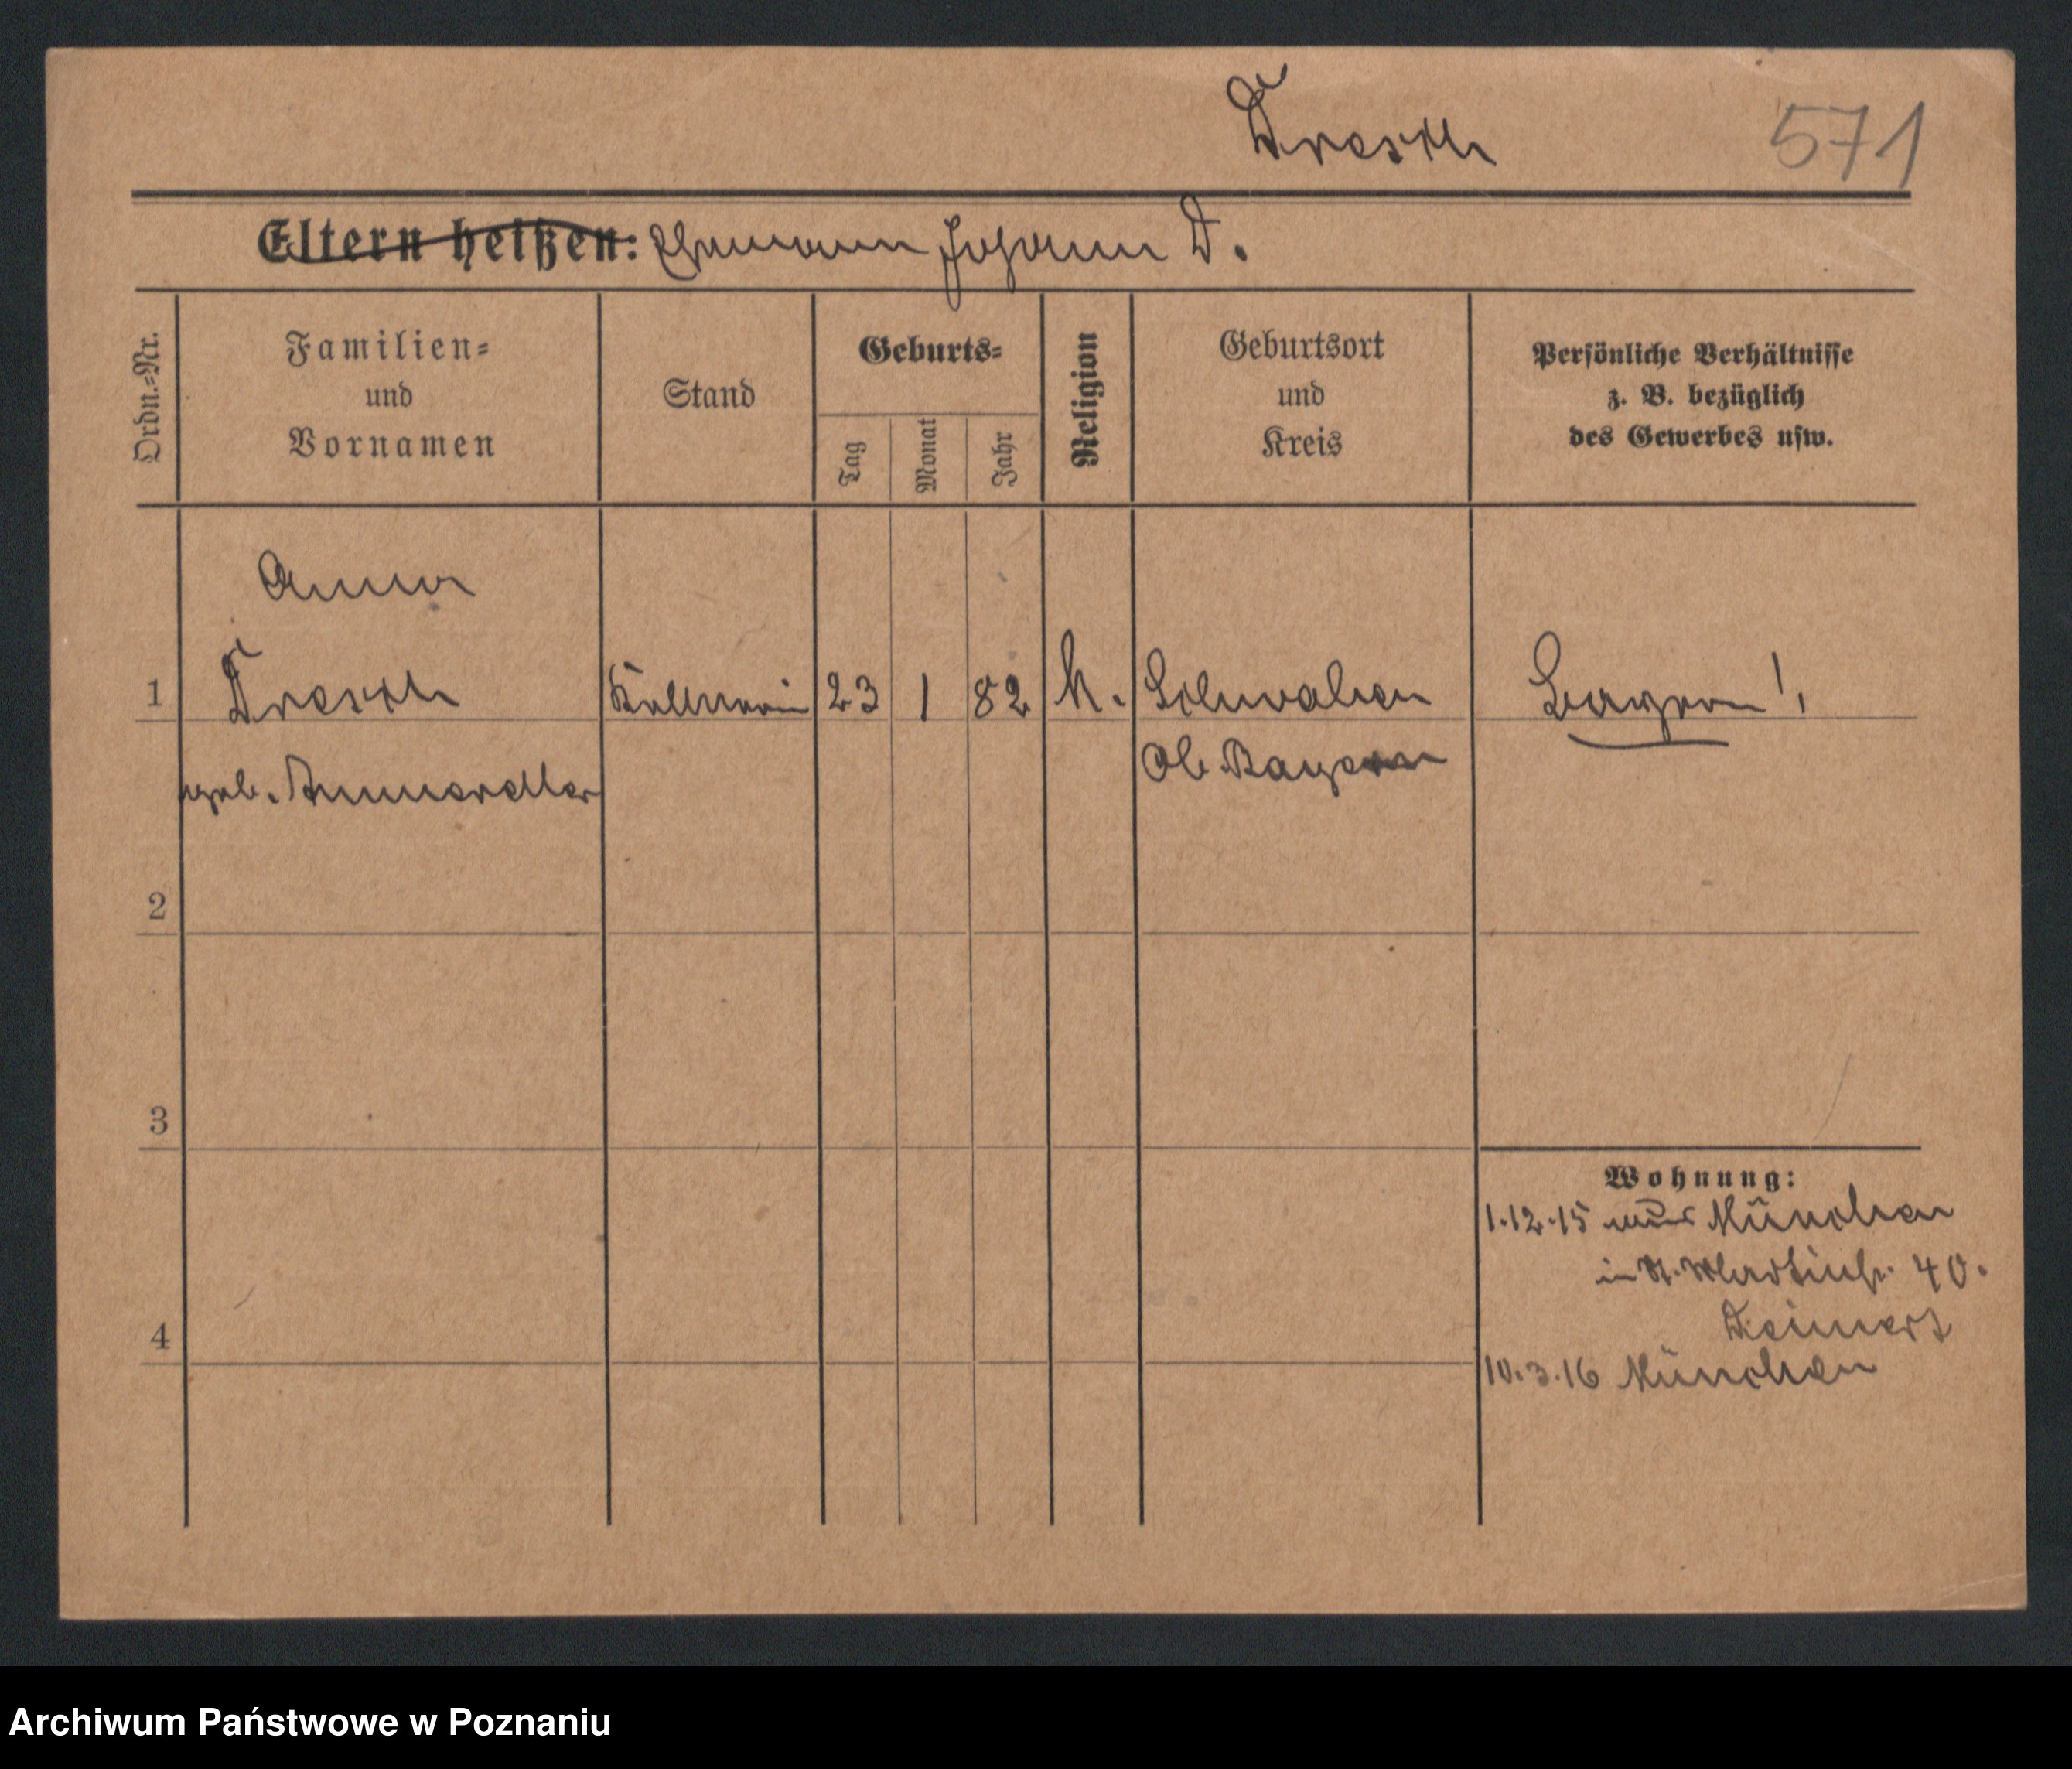 Dresch 571
Eltern heißen: Ehemann Johann D.
Ordn.=Nr.
Familien=
und
Vornamen
Stand
Geburts=
Tag
Monat
Jahr
Religion
Geburtsort
und
Kreis
Persönliche Verhältnisse
z. B. bezüglich
des Gewerbes usw.
Anna
1 Dresch Kellnerin 23 1 82 k. Schwaben Bayern!
geb. Ob. Bayern
2
3
Wohnung:
1.12.15 aus München
in St. Martinstr. 40.
4
10.3.16 München
Archiwum Państwowe w Poznaniu